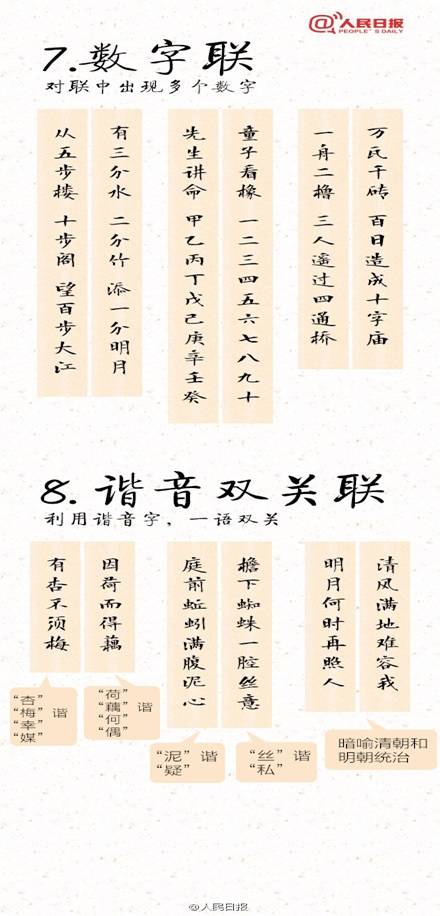 人民日报
PEOPLE'S DAILY
7.数字联
对联中出现多个数字
万氏千砖 百日造成十字庙
一舟二橹 三人遥过四通桥
童子看橡 一二三四五六七八九十
先生讲命 甲乙丙丁戊己庚辛壬癸
有三分水 二分竹 添一分明月
从五步楼 十步阁 望百步大江
8.谐音双关联
利用谐音字，一语双关
清风满地难容我
明月何时再照人
檐下蜘蛛一腔丝意
庭前蚯蚓满腹泥心
因荷而得藕
有杏不须梅
暗喻清朝和
明朝统治
“丝” 谐
“私”
“泥” 谐
“疑”
“荷”
“藕” 谐
“何”
“偶”
“杏”
“梅” 谐
“幸”
“媒”
@人民日报